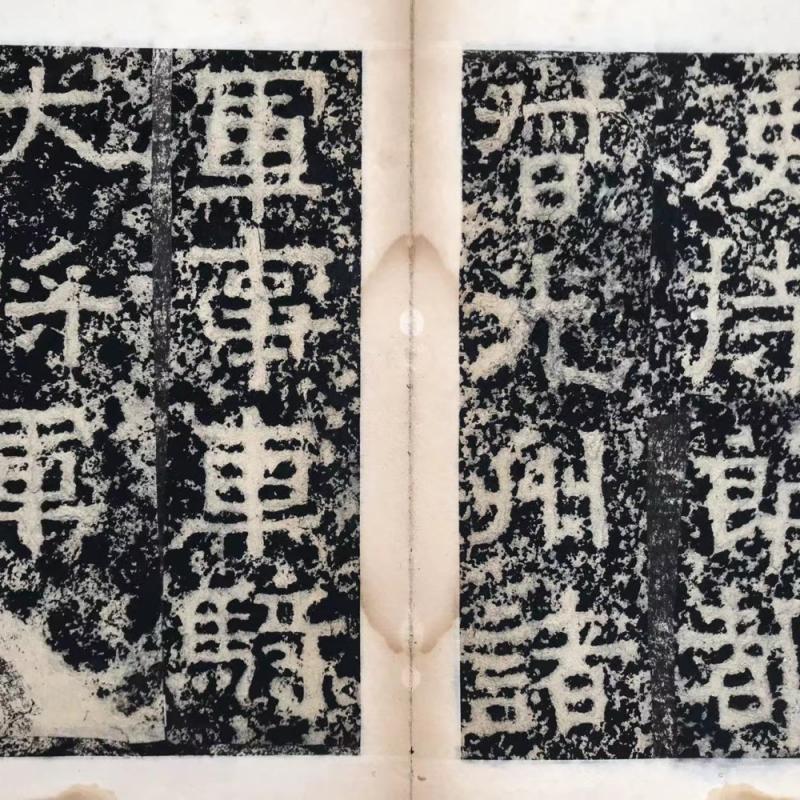 使持節都
督州諸
軍事車騎
大將軍